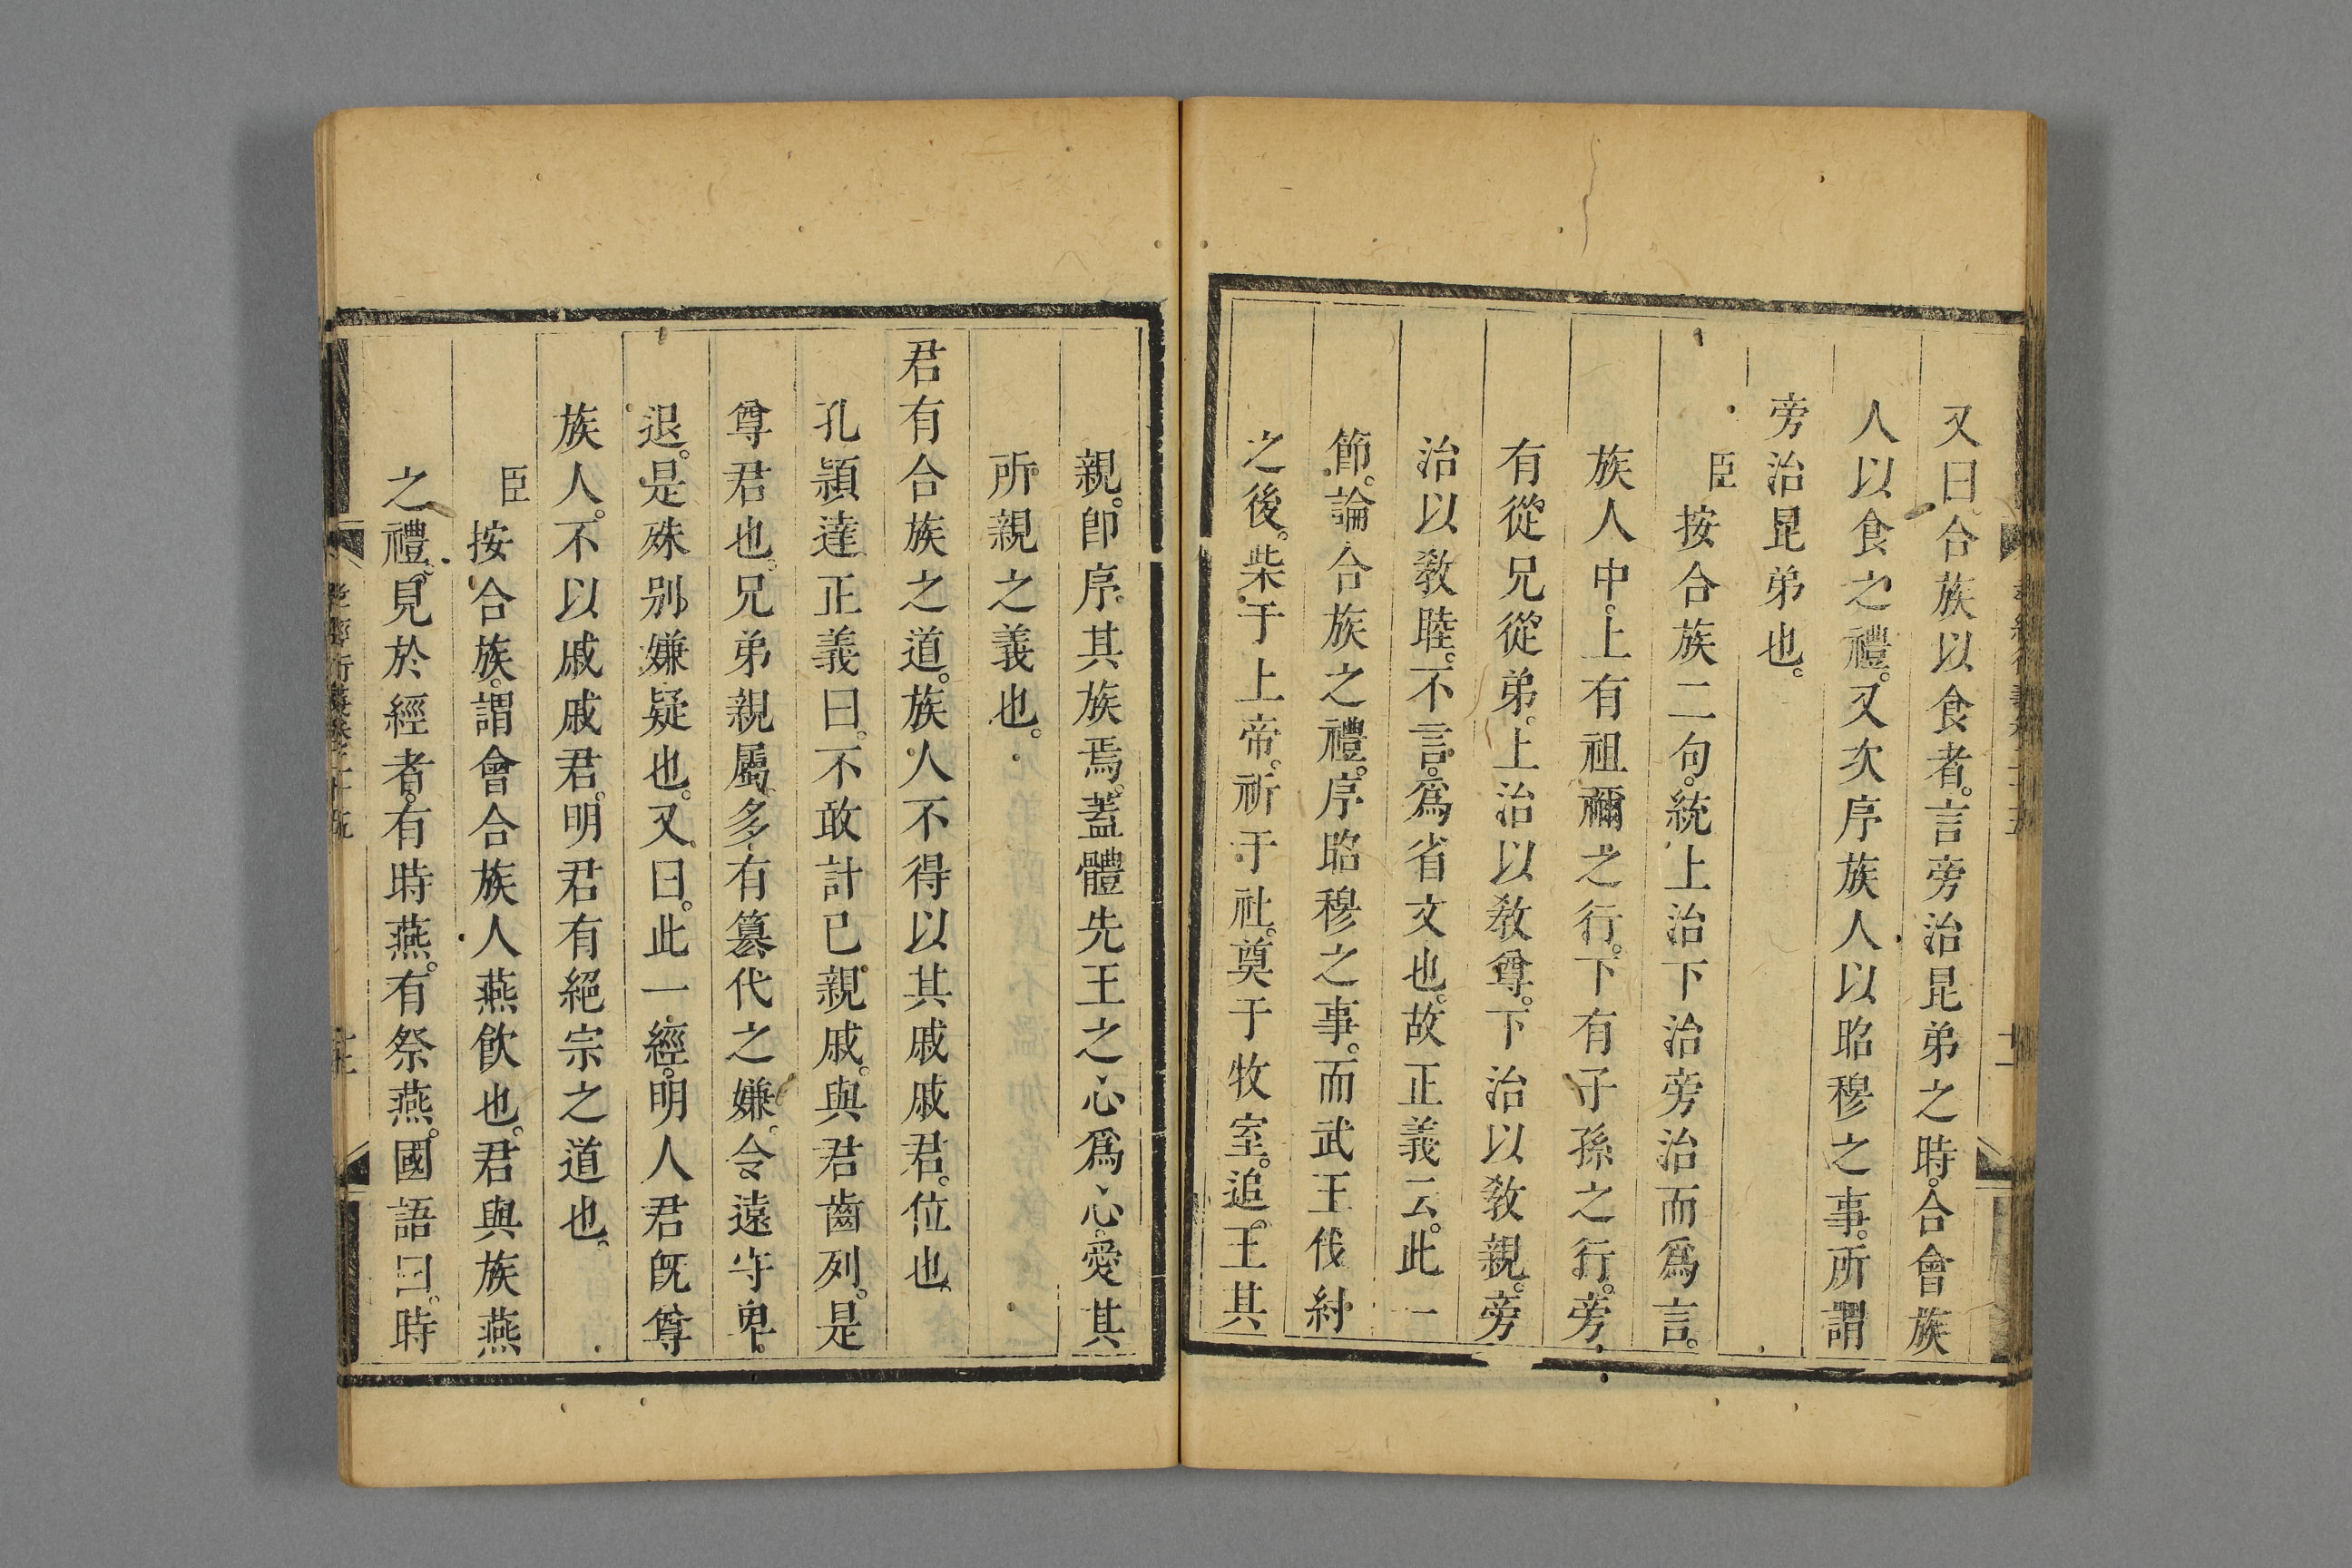 又曰合族以食者。言旁治昆弟之時。合會族
人以食之禮。又次序族人以昭穆之事。所謂
旁治昆弟也。
臣按合族二句。統上治下治旁治而爲言。
族人中。上有祖禰之行。下有子孫之行。旁
有從兄從弟。上治以教尊。下治以教親。旁
治以教睦。不言。爲省文也。故正義云。此一
節。論合族之禮。序昭穆之事。而武王伐紂
之後。柴于上帝。祈于社。奠于牧室。追王其
親。卽序其族焉。蓋體先王之心爲心。愛其
所親之義也。
君有合族之道。族人不得以其戚戚君。位也。
孔頴達正義曰。不敢計已親戚。與君齒列。是
尊君也。兄弟親屬。多有篡代之嫌。令遠守卑
退。是殊别嫌疑也。又曰。此一經。明人君旣尊
族人。不以戚戚君。明君有絕宗之道也。
臣按合族。謂會合族人燕飮也。君與族燕
之禮。見於經者。有時燕。有祭燕。國語曰。時